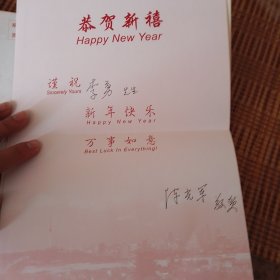 恭贺新禧
Happy New Year
谨祝 李勇 先生
Sincerely Yours
新年快乐
Happy New Year
万事如意
Best Luck in Everything!